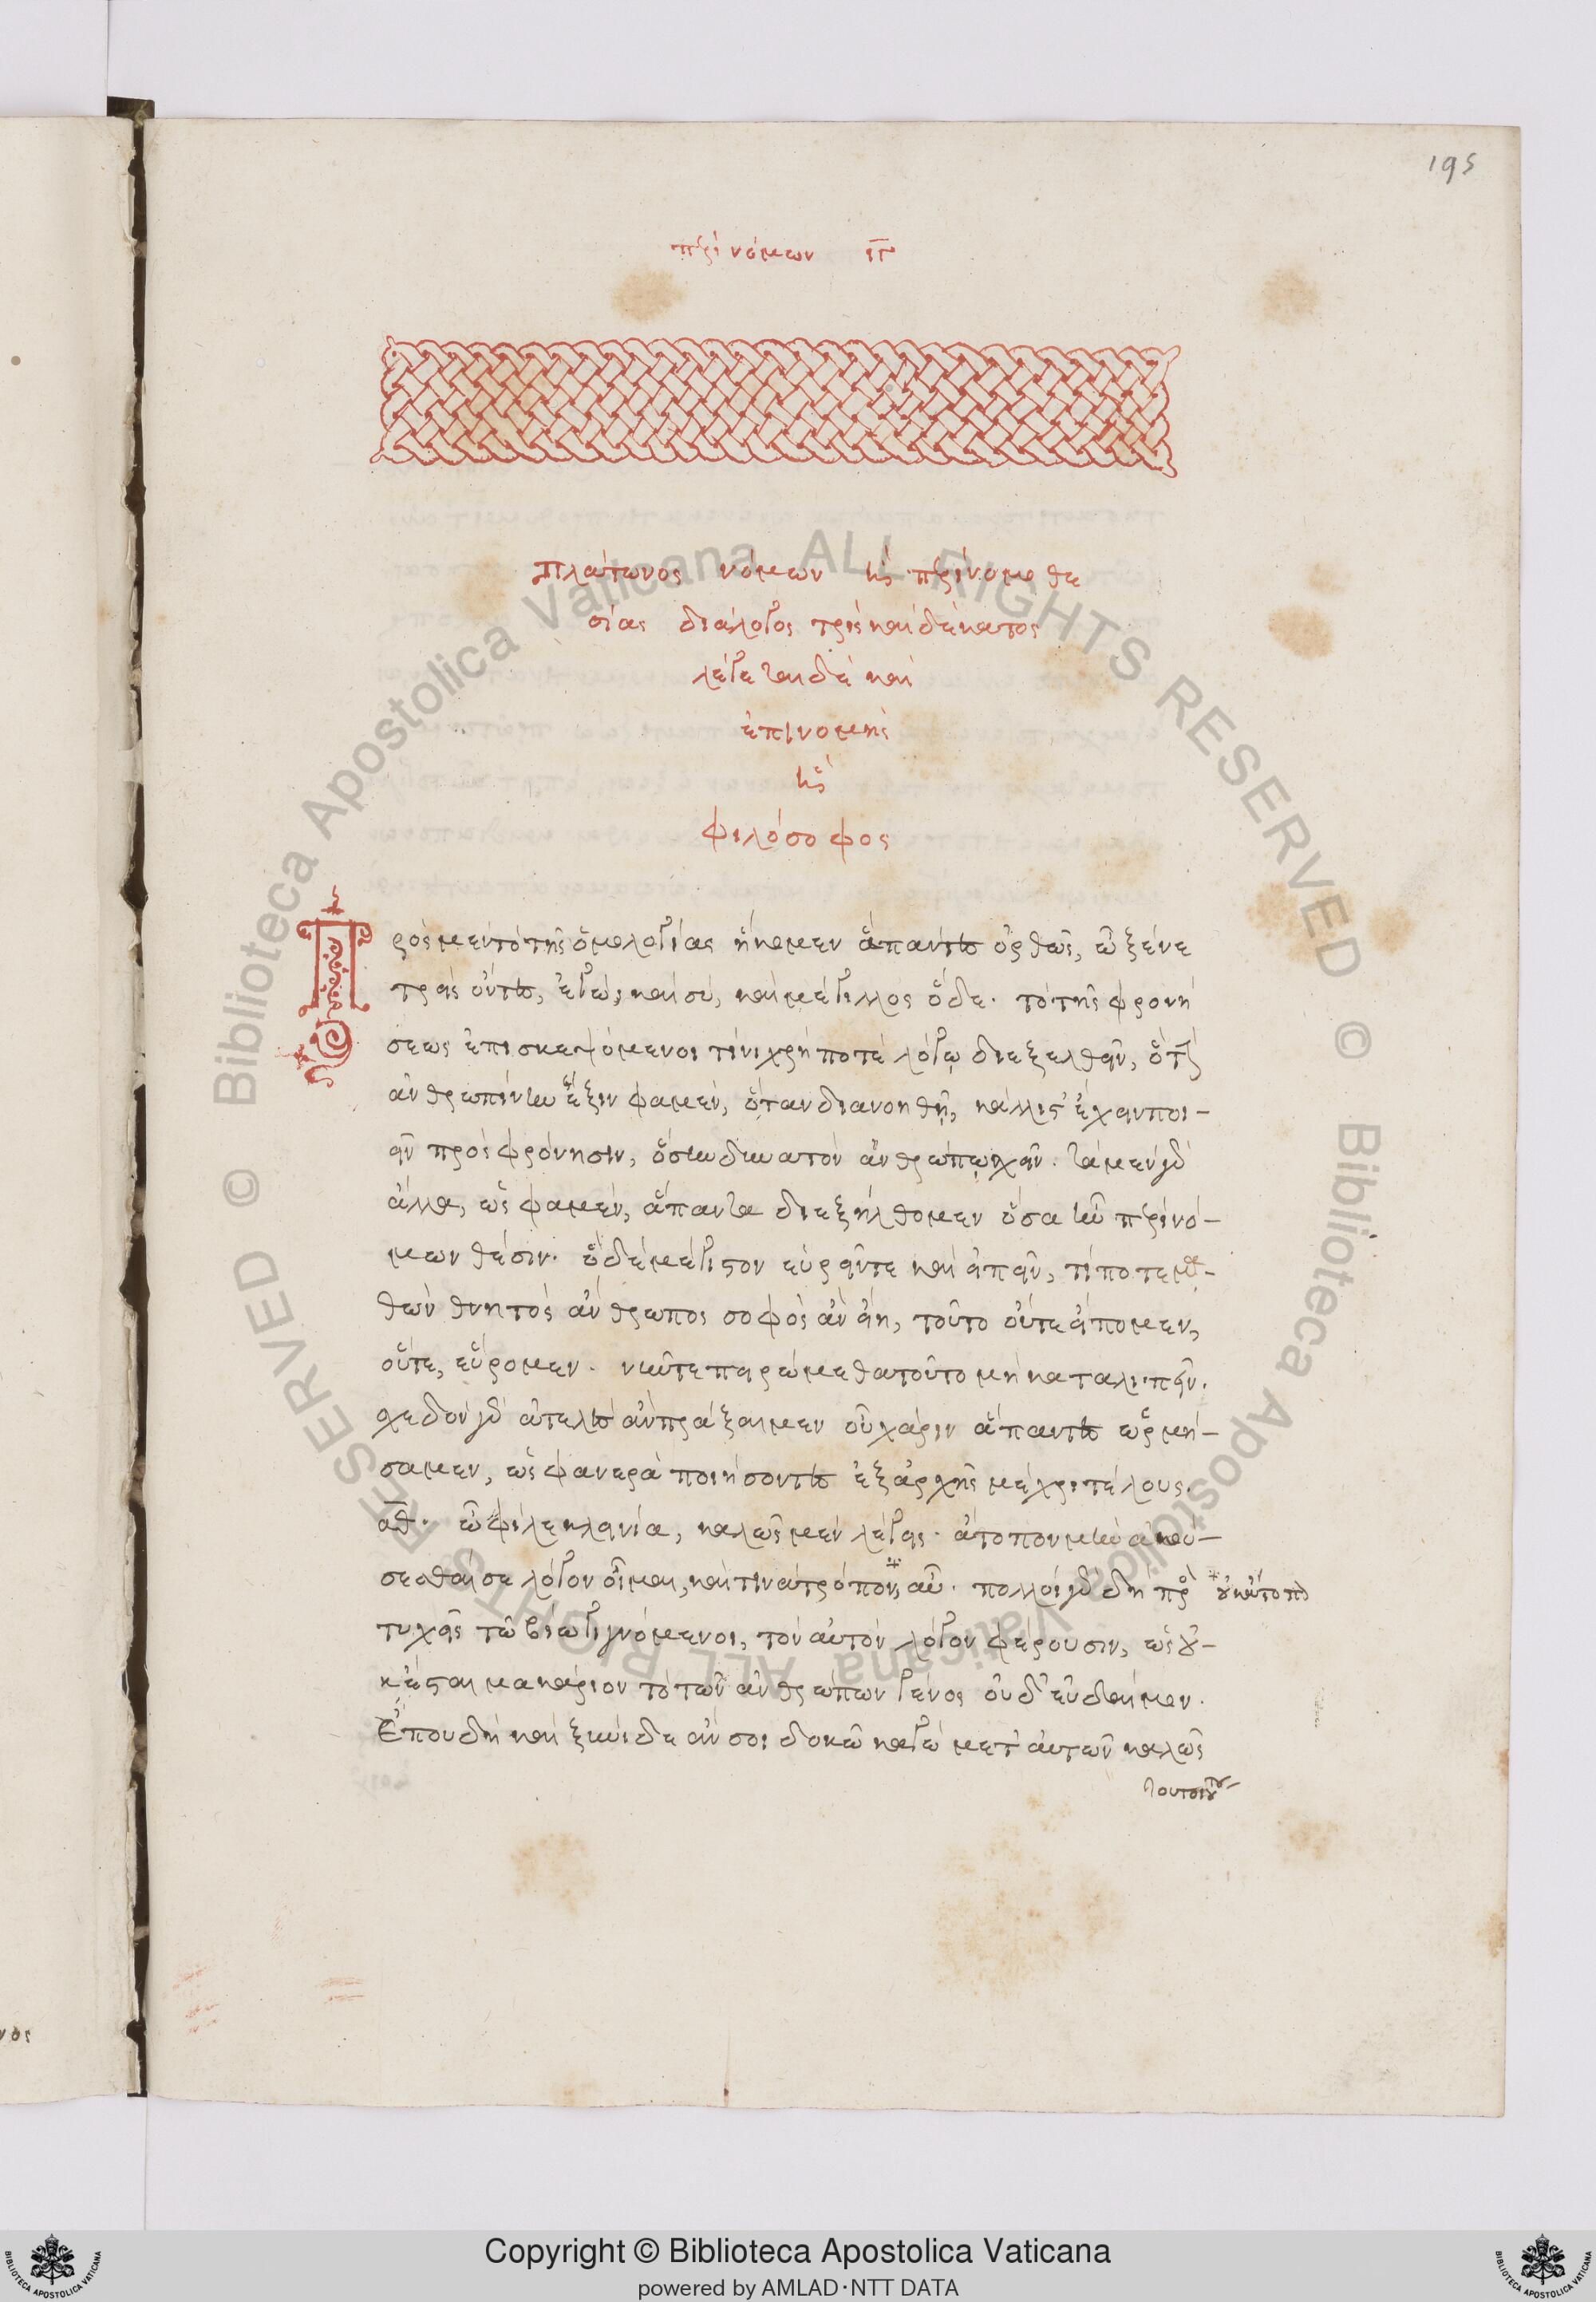 195
περὶ νόμων ιγ
Πλάτωνος νόμων ἢ περὶ νομοθε
σίας διάλογος τρισκαιδέκατος
λέγεται δὲ καὶ
ἐπινομὶς
ἢ
φιλόσοφος
Πρὸς μὲν τὸ τῆς ὁμολογίας ἥκομεν ἅπαντες ὀρθῶς, ὦ ξένε
τρεῖς ὄντες, ἐγώ, καὶ σύ, καὶ μέγιλλος ὅδε. τὸ τῆς φρονή
σεως ἐπισκεψόμενοι τίνι χρή ποτε λόγῳ διεξελθεῖν, ὅ τὴν
ἀνθρωπίνην ἕξιν φαμέν, ὅταν διανοηθῇ, κάλλιστ' ἔχειν ποι-
εῖν πρὸς φρόνησιν, ὅσην δυνατὸν ἀνθρώπῳ σχεῖν. τὰ μὲν γὰρ
ἄλλα, ὥς φαμέν, ἅπαντα διεξήλθομεν ὅσα ἦν περὶ νό-
μων θέσιν. ὃ δὲ μέγιστον εὑρεῖν τε καὶ εἰπεῖν, τί ποτε μα-
θὼν θνητὸς ἄνθρωπος σοφὸς ἂν εἴη, τοῦτο οὔτε εἴπομεν,
οὔτε, εὕρομεν. νῦν τε πειρώμεθα τοῦτο μὴ καταλιπεῖν.
σχεδὸν γὰρ ἀτελὲς ἂν πράξαιμεν οὗ χάριν ἅπαντες ὡρμή-
σαμεν, ὡς φανερὰ ποιήσοντες ἐξ ἀρχῆς μέχρι τέλους.
ἀθ. ὦ φίλε κλεινία, καλῶς μὲν λέγεις. ἄτοπον μὴν ἀκού-
σεσθαί σε λόγον οἶμαι, καί τινα τρόπον αὖ. πολλοὶ γὰρ δὴ πρὸς
οὐκ ἄτοπον
τυχεῖς τῷ βίῳ γιγνόμενοι, τὸν αὐτὸν λόγον φέρουσιν, ὡς οὐ-
κ ἔσται μακάριον τὸ τῶν ἀνθρώπων γένος οὐδ' εὔδαιμον.
Ἕπου δὴ καὶ ξύνιδε ἄν σοι δοκῶ κἀγὼ μετ' αὐτῶν καλῶς